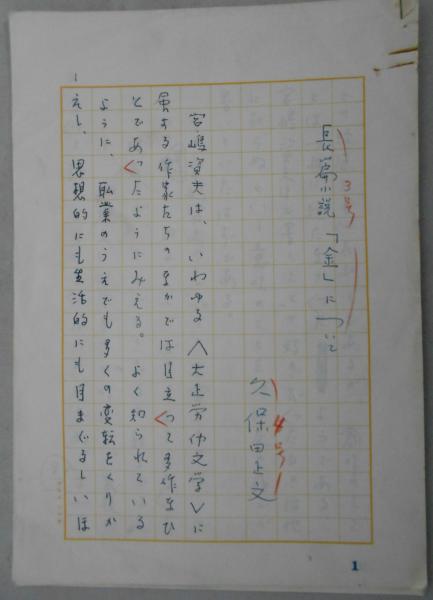 長篇小説「金」について
3号
久保田正文
4号
宮嶋資夫は、いわゆる〈大正労働文学〉に
属する作家たちのなかでは目立って多作なひ
とであったようにみえる。よく知られている
ように、職業のうえでも多くの変転をくりか
えし、思想的にも生活的にも目まぐるしいほ
1